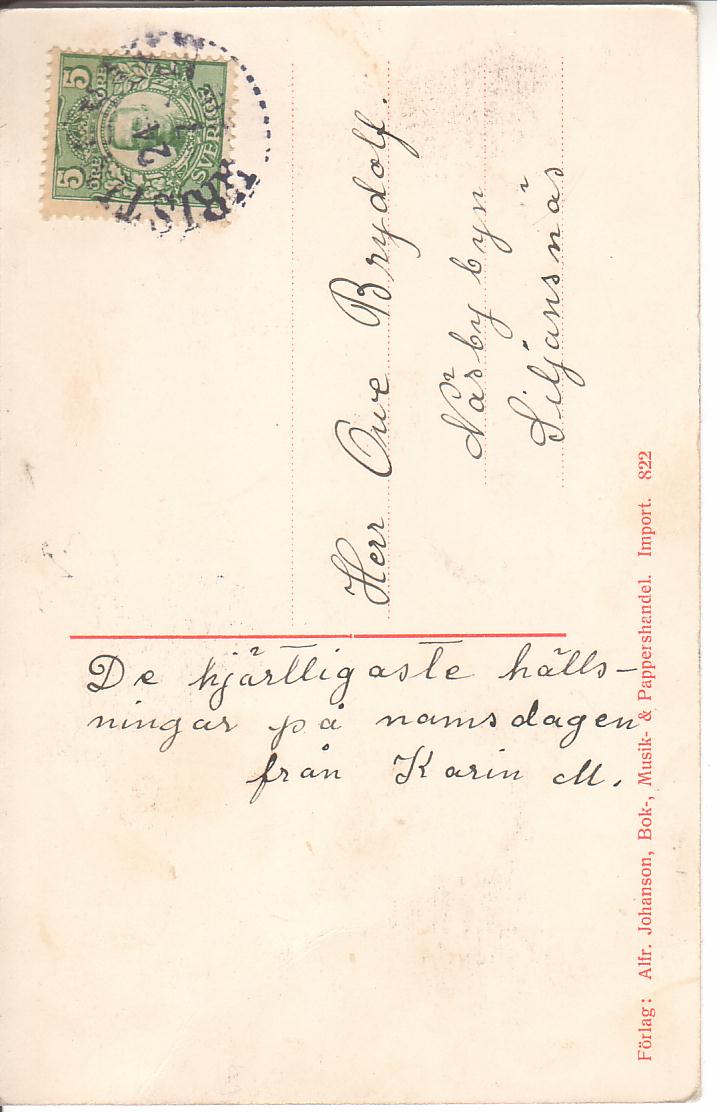 5 5
ÖRE ÖRE
SVERIGE
24
Herr Owe Brydolf.
Näsby byn
Siljansnäs
De hjärtligaste hälls-
ningar på namsdagen
från Karin M.
Förlag: Alfr. Johanson, Bok-, Musik- & Pappershandel. Import. 822